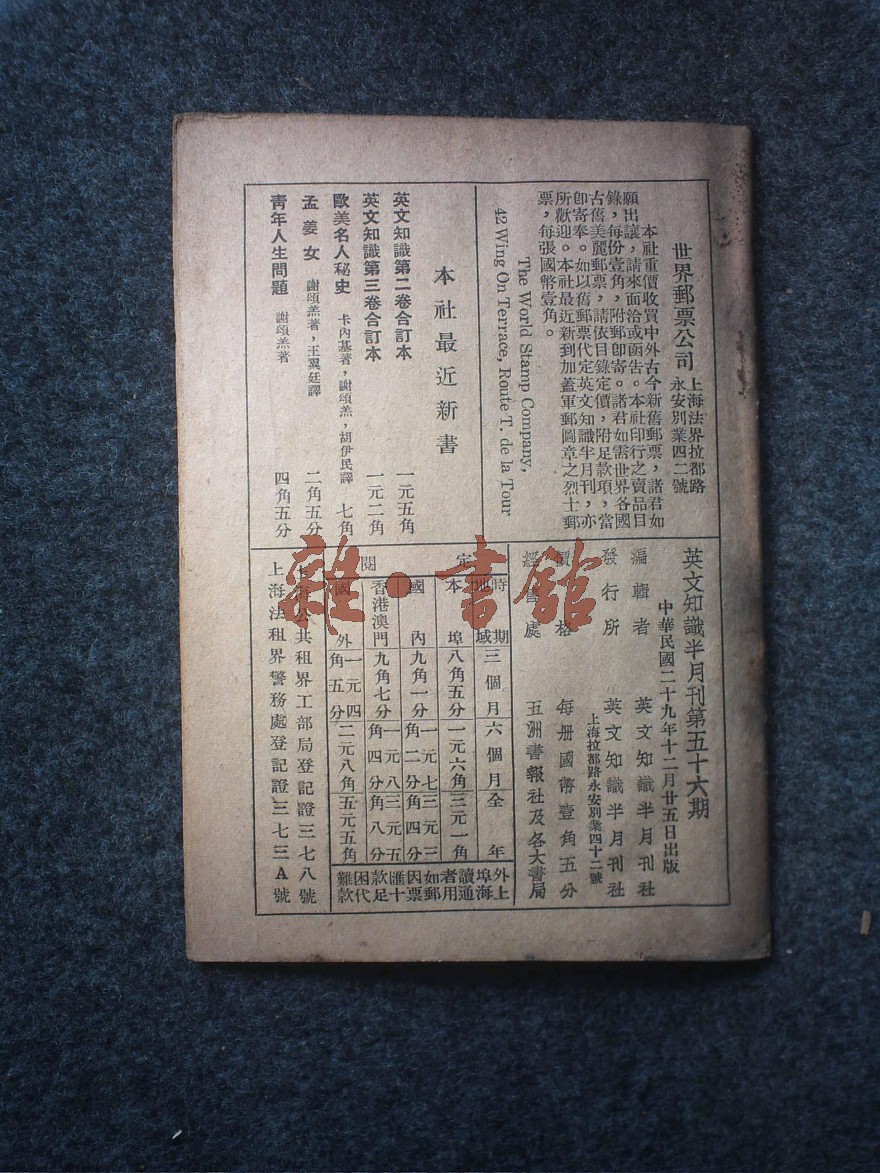 世界郵票公司
上海法界拉都路
永安別業四二號
本社重價收買中外古今新舊郵票,諸君如
願出讓,請來面洽或函告。本社印行之賣品目
錄,每份壹角,附郵卽寄。諸君如需世界各國
古舊美麗郵票,請依目錄定價,附足款項,當
卽寄奉。如以舊郵票代定英文知識半月刊,亦
所歡迎。本社最近新到加蓋軍郵圖章之烈士郵
票,每張國幣壹角。
The World Stamp Company,
42 Wing On Terrace, Route T. de la Tour
本社最近新書
英文知識第二卷合訂本 一元五角
英文知識第三卷合訂本 一元二角
歐美名人秘史 卡內基著,謝頌羔,胡伊民譯 七角
孟姜女 謝頌羔著,王翼廷譯 二角五分
青年人生問題 謝頌羔著 四角五分
英文知識半月刊第五十六期
中華民國二十九年十二月廿五日出版
編輯者 英文知識半月刊社
發行所 英文知識半月刊社
上海拉都路永安別業四十二號
價格 每册國幣壹角五分
經售處 五洲書報社及各大書局
定閱
時期 地域 三個月 六個月 全年
本埠 八角五分 一元六角 三元一角
國內 九角一分 一元七角二分 三元三角四分
香港澳門 九角七分 一元八角四分 三元五角八分
國外 一元四角五分 二元八角 五元五角
上海公共租界工部局登記證三七八號
上海法租界警務處登記證三七三A號
外埠讀者如因匯款困難
上海通用郵票十足代款
雜·書館